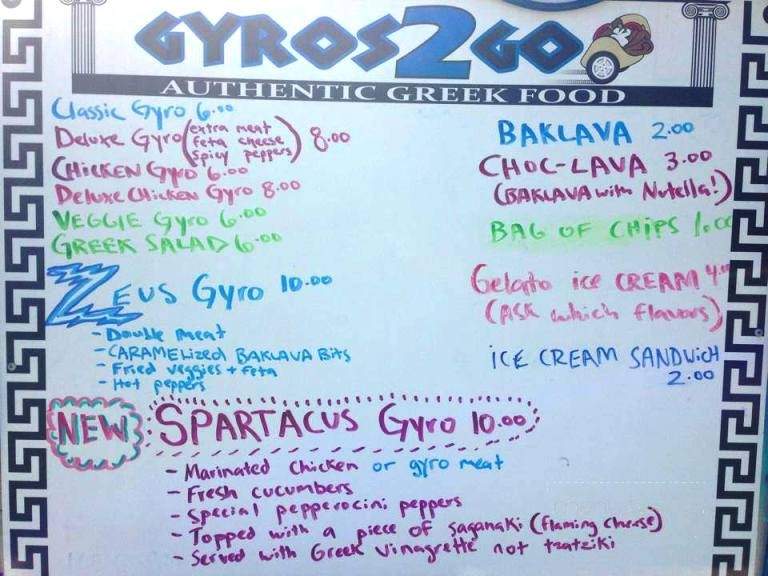 GYROS2GO
AUTHENTIC GREEK FOOD
Classic Gyro 6.00
Deluxe Gyro (extra meat
feta cheese
spicy peppers) 8.00
CHicken Gyro 6.00
Deluxe Chicken Gyro 8.00
VEGGIE Gyro 6.00
GREEK SALAD 6.00
ZEUS Gyro 10.00
- Double meat
- CARAMELized BAKLAVA Bits
- Fried veggies + feta
- Hot peppers
BAKLAVA 2.00
CHOC-LAVA 3.00
(BAKLAVA with Nutella!)
BAG OF CHiPS 1.00
Gelato ice CREAM 4.00
(ASK which flavors)
iCE CREAM SANDWicH
2.00
NEW SPARTACUS Gyro 10.00
- Marinated chicken or gyro meat
- Fresh cucumbers
- Special pepperocini peppers
- Topped with a piece of saganaki (flaming cheese)
- Served with Greek vinagrette not tzatziki